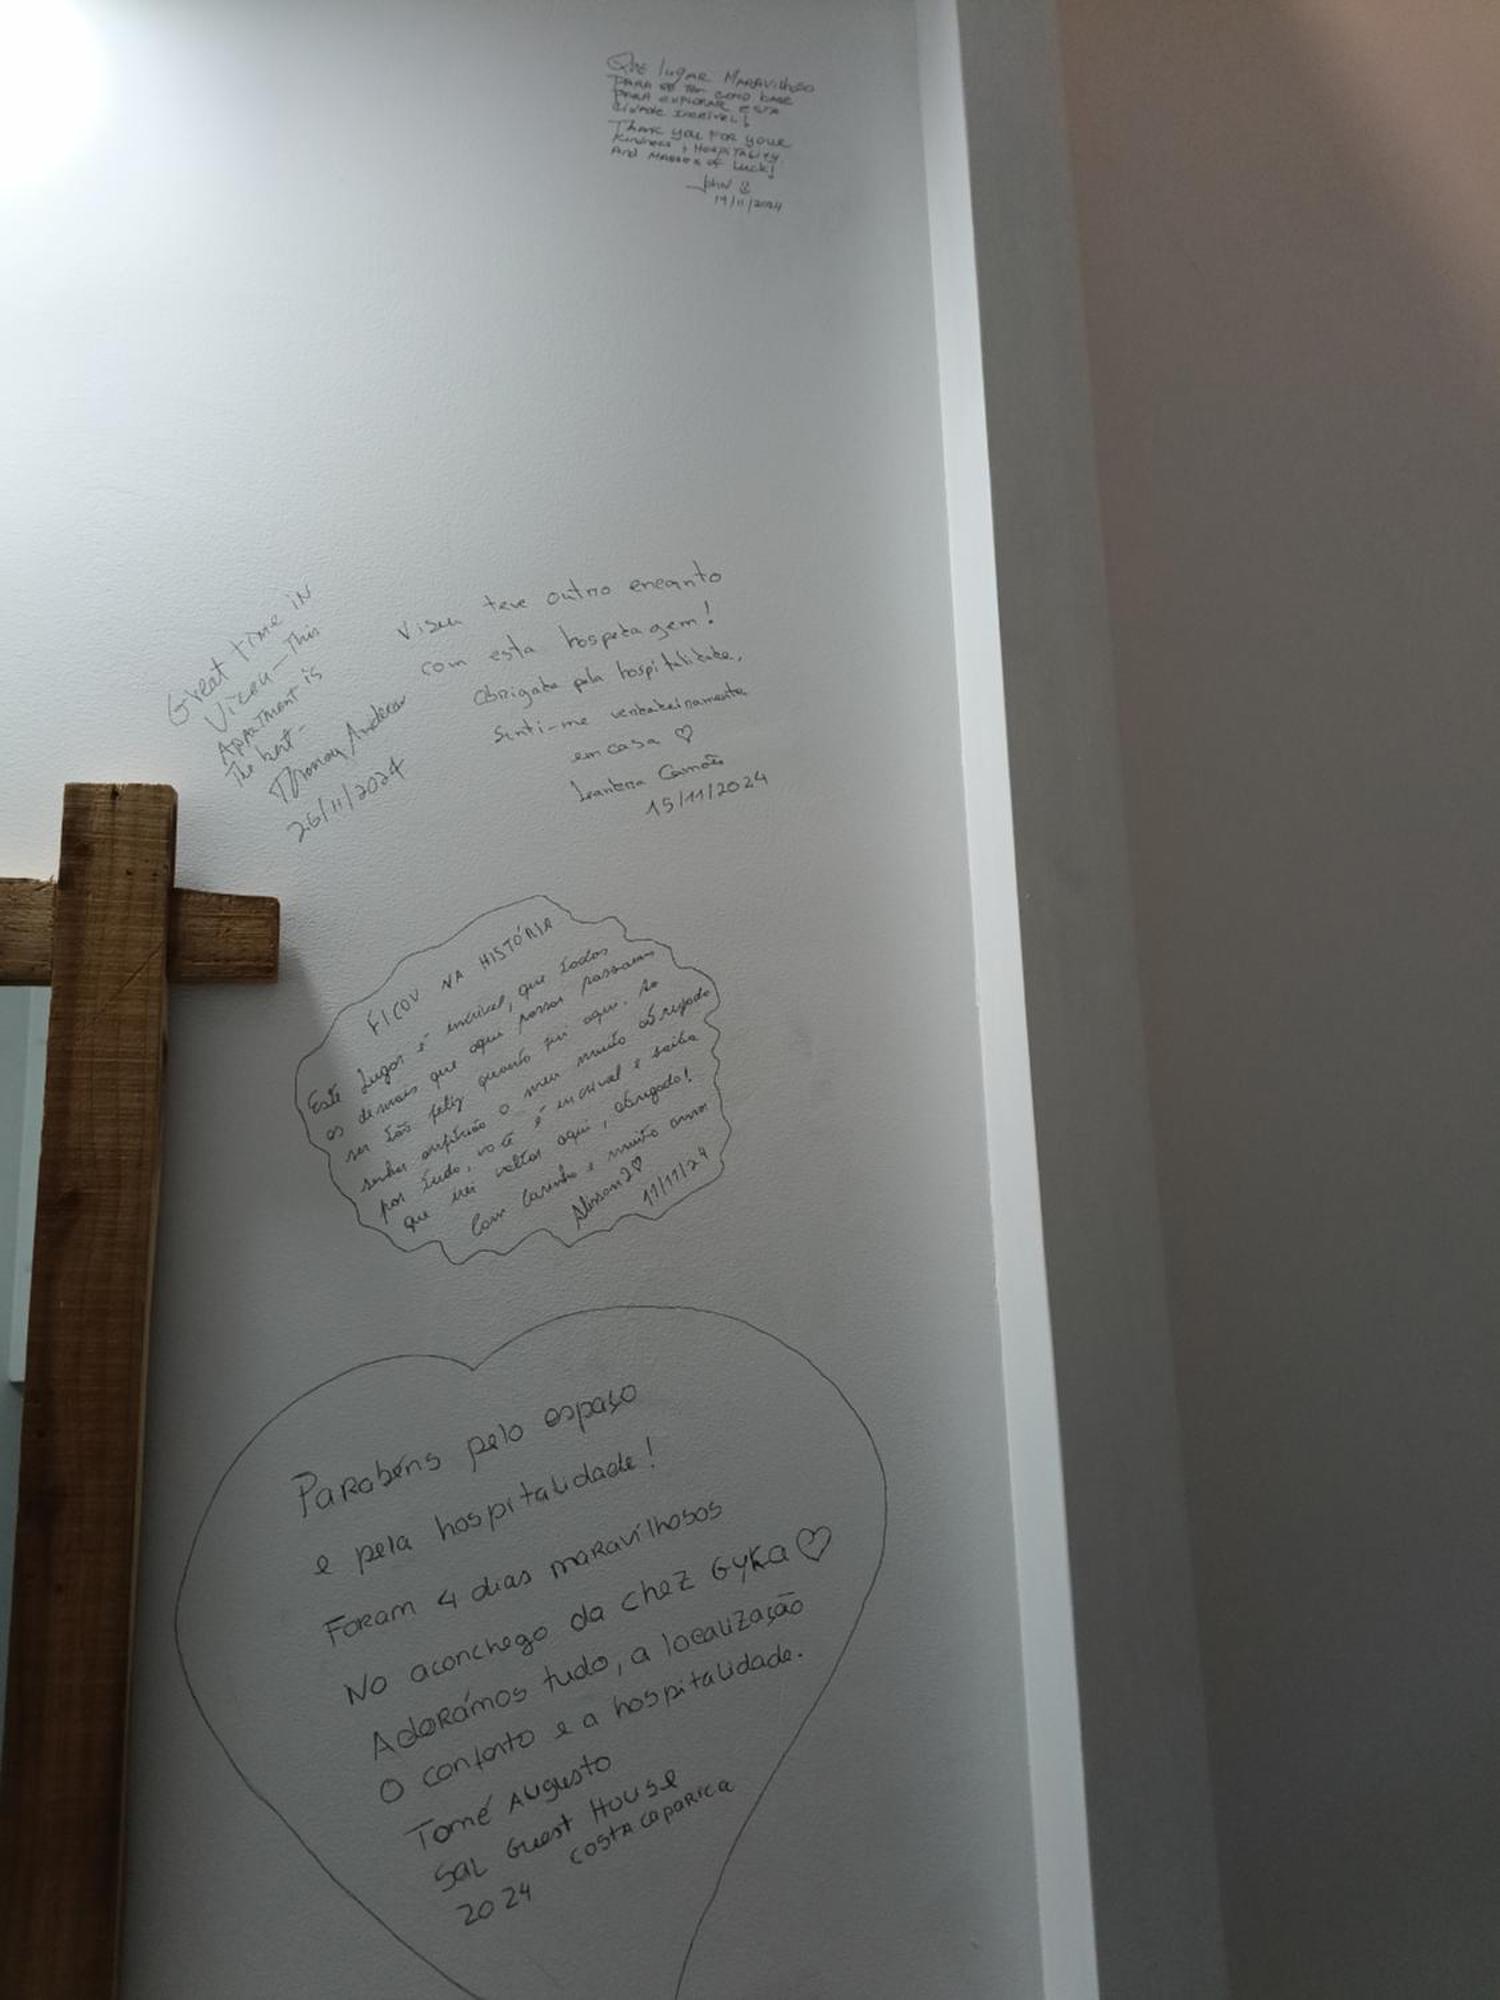 Que lugar maravilhoso
para se ter como base
para explorar esta
cidade incrível!
Thank you for your
kindness + hospitality
and masses of luck!
John
19/11/2024
Great time in
Viseu - This
Apartment is
The best -
26/11/2024
Viseu teve outro encanto
com esta hospedagem!
Obrigada pela hospitalidade,
Senti-me verdadeiramente
em casa ♡
Camões
15/11/2024
FICOU NA HISTÓRIA
Este lugar é incrível, que todos
os demais que aqui possam passarem
ser tão feliz quanto fui aqui. Ao
senhor anfitrião o meu muito obrigado
por tudo, você é incrível e saiba
que irei voltar aqui, obrigado!
Com carinho e muito amor
♡
11/11/24
Parabéns pelo espaço
e pela hospitalidade!
Foram 4 dias maravilhosos
No aconchego da chez Gyka ♡
Adorámos tudo, a localização
O conforto e a hospitalidade.
Tomé Augusto
Sal Guest House
Costa Caparica
2024